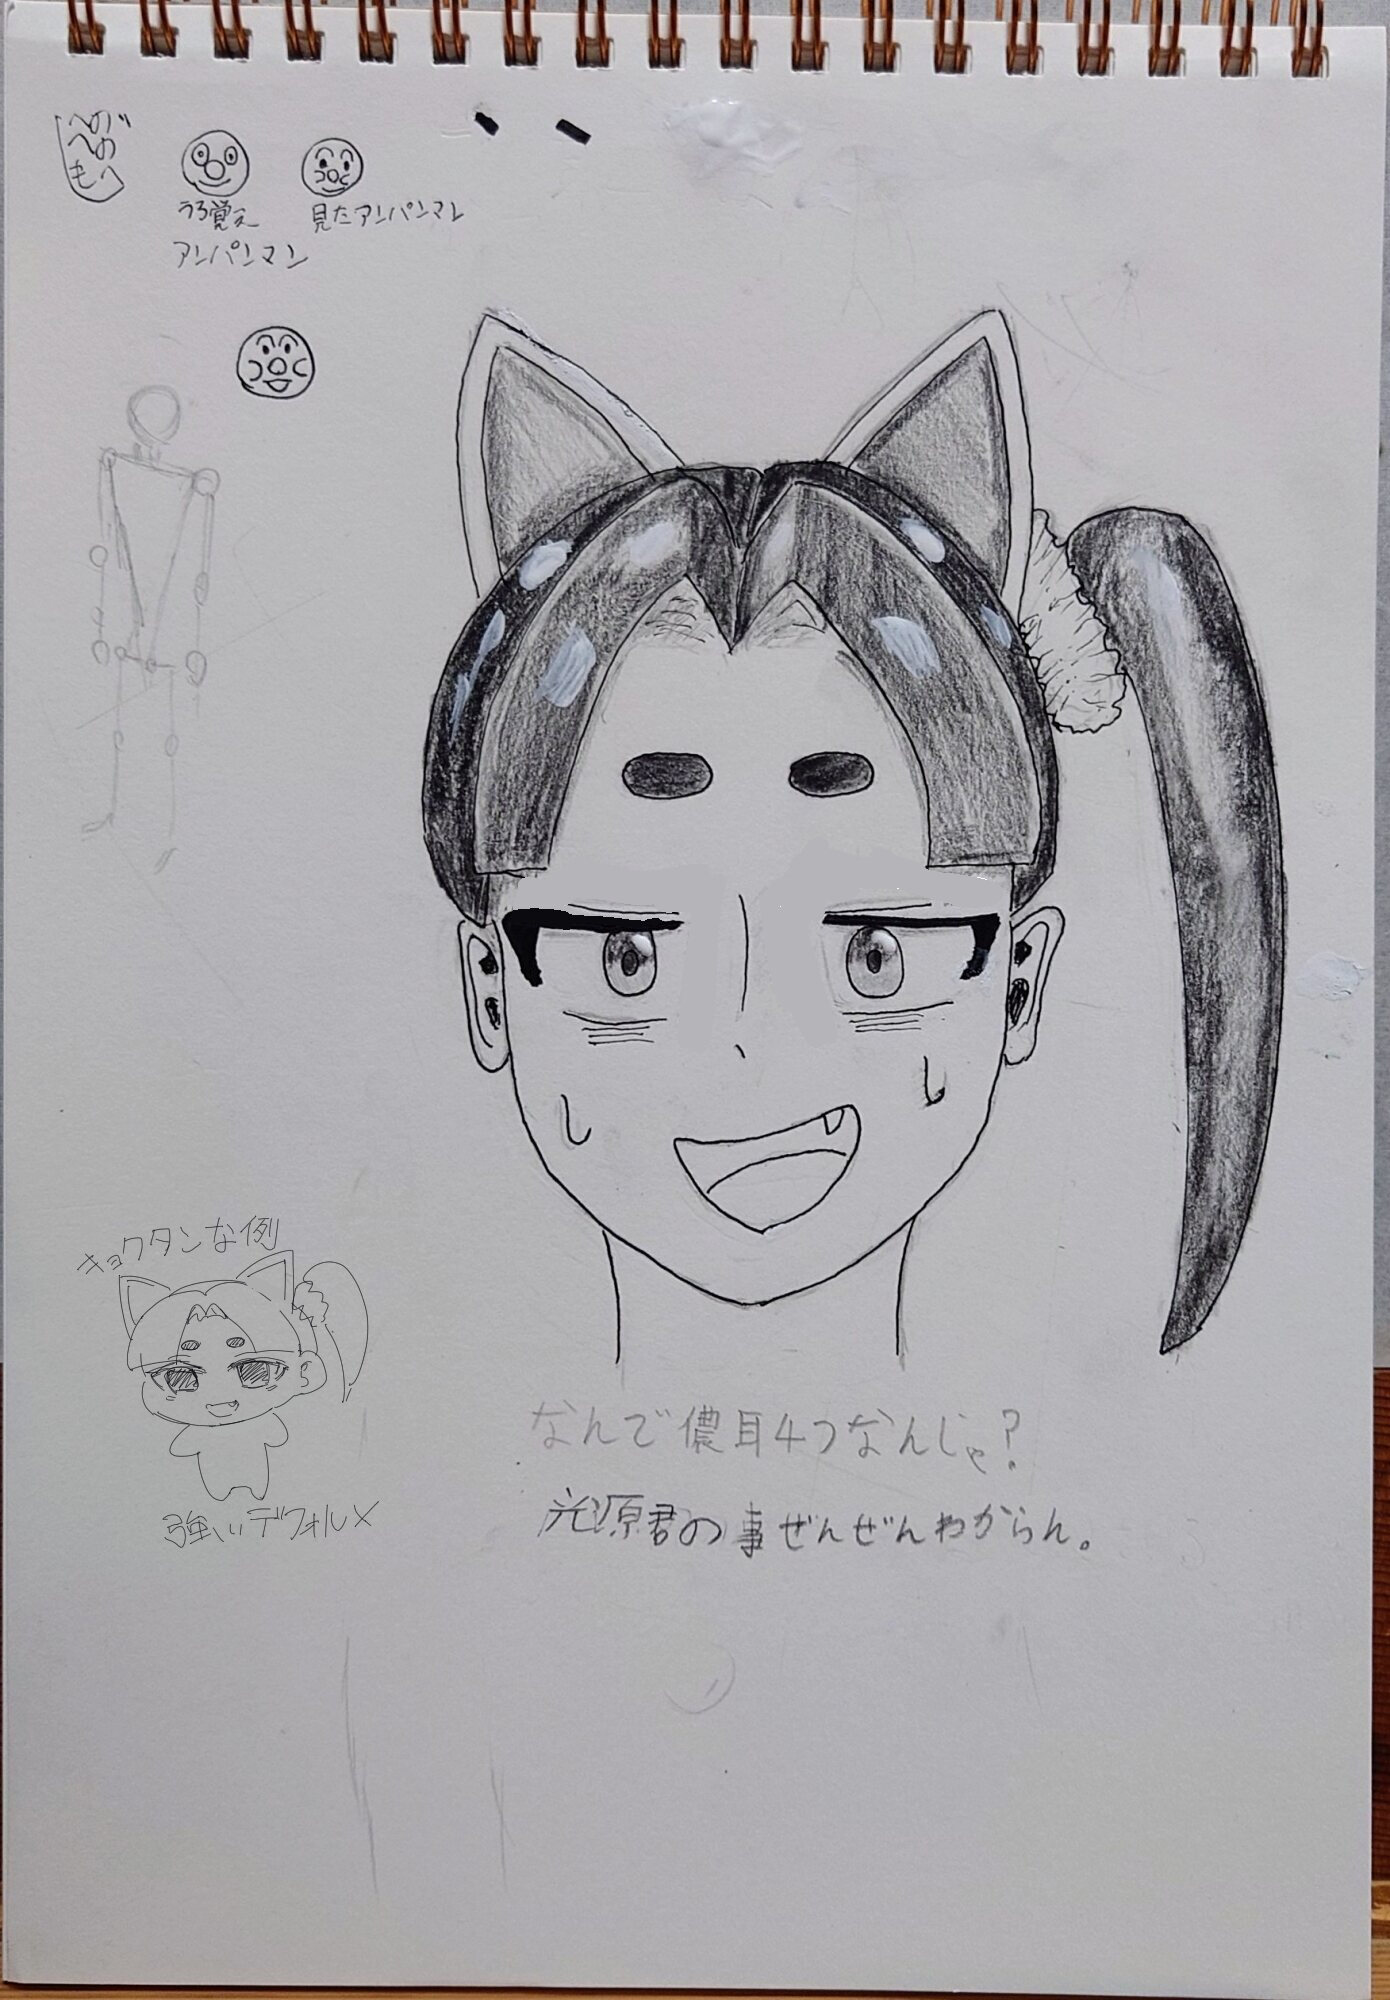 へのへのもへじ
うろ覚え
アンパンマン
見たアンパンマン
キョクタンな例
強いデフォルメ
なんで儂耳4つなんじゃ?
光源君の事ぜんぜんわからん。